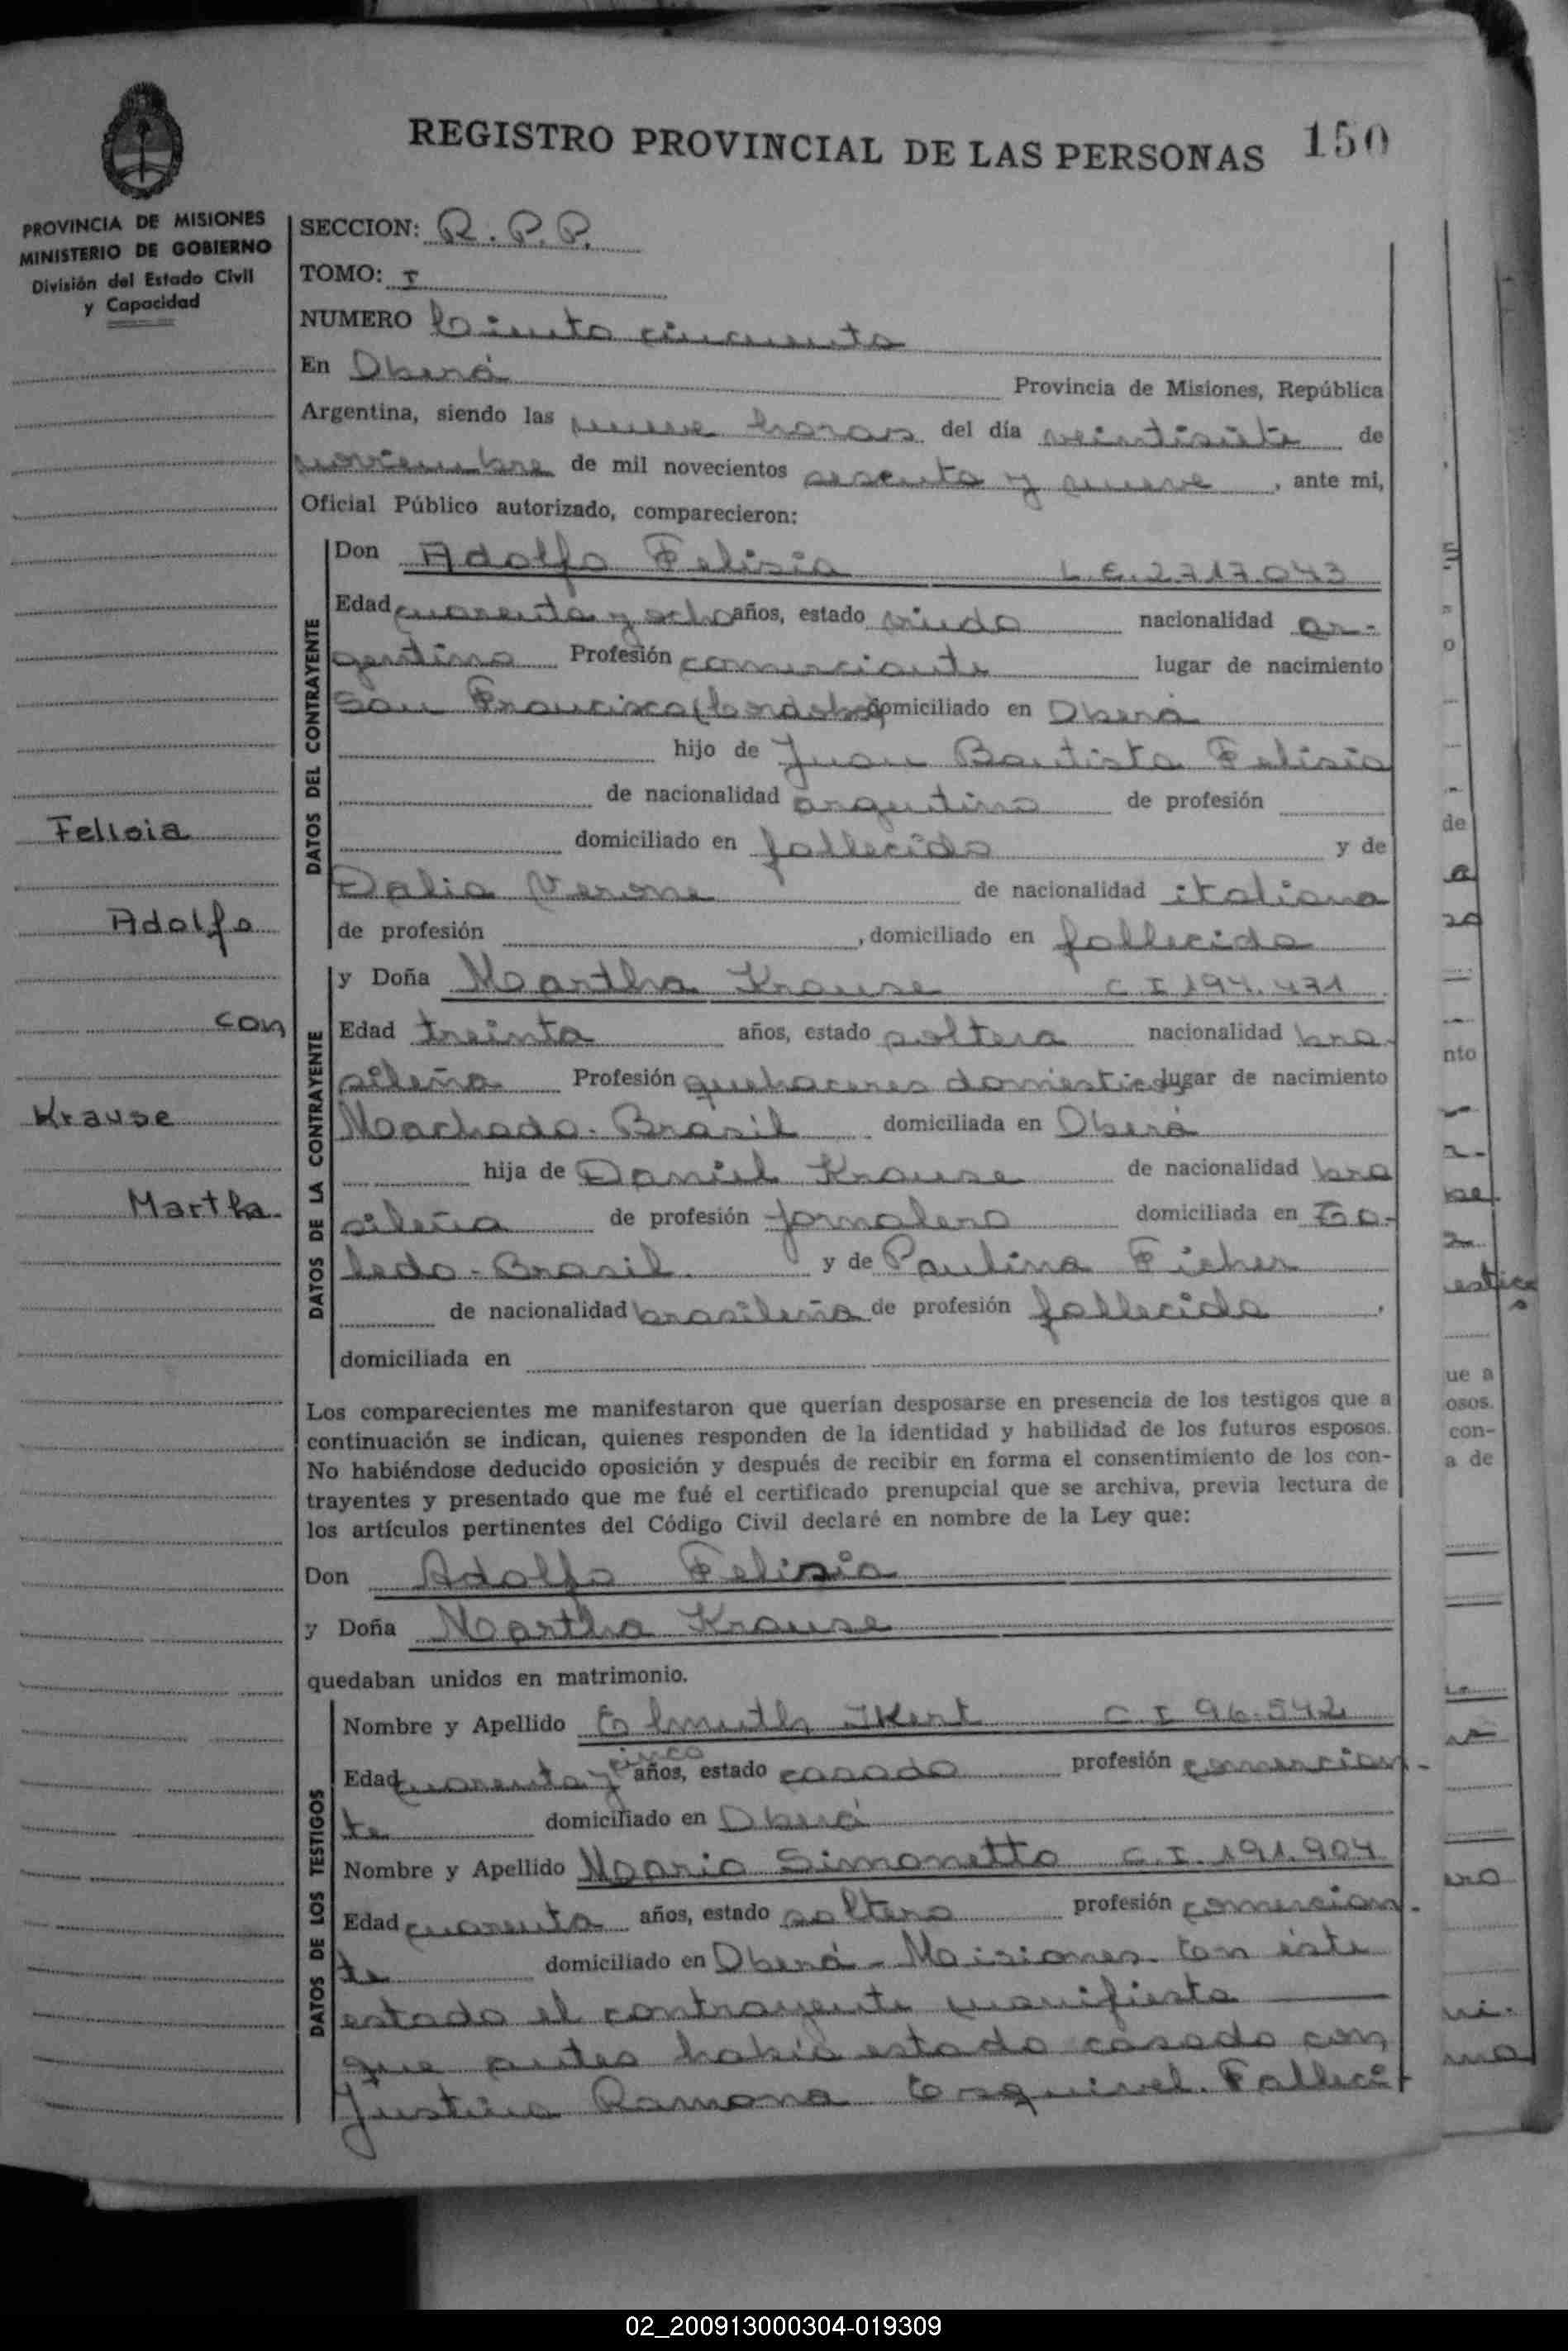 REGISTRO PROVINCIAL DE LAS PERSONAS 150
PROVINCIA DE MISIONES
MINISTERIO DE GOBIERNO
División del Estado Civil
y Capacidad
SECCION: R.P.P.
TOMO: I
NUMERO Ciento cincuenta
En Oberá Provincia de Misiones, República
Argentina, siendo las nueve horas del día veintisiete de
noviembre de mil novecientos sesenta y nueve, ante mi,
Oficial Público autorizado, comparecieron:
DATOS DEL CONTRAYENTE
Don Adolfo Felisia L.E.2717.043
Edad cuarenta y ocho años, estado viudo nacionalidad ar-
gentino Profesión comerciante lugar de nacimiento
San Francisco (Cordoba) domiciliado en Oberá
hijo de Juan Bautista Felisia
de nacionalidad argentino de profesión
domiciliado en fallecido y de
Dalia Verone de nacionalidad italiana
de profesión , domiciliado en fallecida
Felisia
Adolfo
con
Krause
Martha.
DATOS DE LA CONTRAYENTE
y Doña Martha Krause C.I 194.471
Edad treinta años, estado soltera nacionalidad bra-
sileña Profesión quehaceres domesticos lugar de nacimiento
Machado - Brasil domiciliada en Oberá
hija de Daniel Krause de nacionalidad bra
sileña de profesión jornalero domiciliada en To-
ledo - Brasil. y de Paulina Ficher
de nacionalidad brasileña de profesión fallecida ,
domiciliada en
Los comparecientes me manifestaron que querían desposarse en presencia de los testigos que a
continuación se indican, quienes responden de la identidad y habilidad de los futuros esposos.
No habiéndose deducido oposición y después de recibir en forma el consentimiento de los con-
trayentes y presentado que me fué el certificado prenupcial que se archiva, previa lectura de
los artículos pertinentes del Código Civil declaré en nombre de la Ley que:
Don Adolfo Felisia
y Doña Martha Krause
quedaban unidos en matrimonio.
DATOS DE LOS TESTIGOS
Nombre y Apellido Elmuth Ikert C.I 96.542
Edad cuarenta y cinco años, estado casado profesión comercian-
te domiciliado en Oberá
Nombre y Apellido Mario Simonetto C.I. 191.904
Edad cuarenta años, estado soltero profesión comercian-
te domiciliado en Oberá - Misiones. En éste
estado el contrayente manifiesta
que antes había estado casado con
Justina Ramona Esquivel. Falleci
02_200913000304-019309